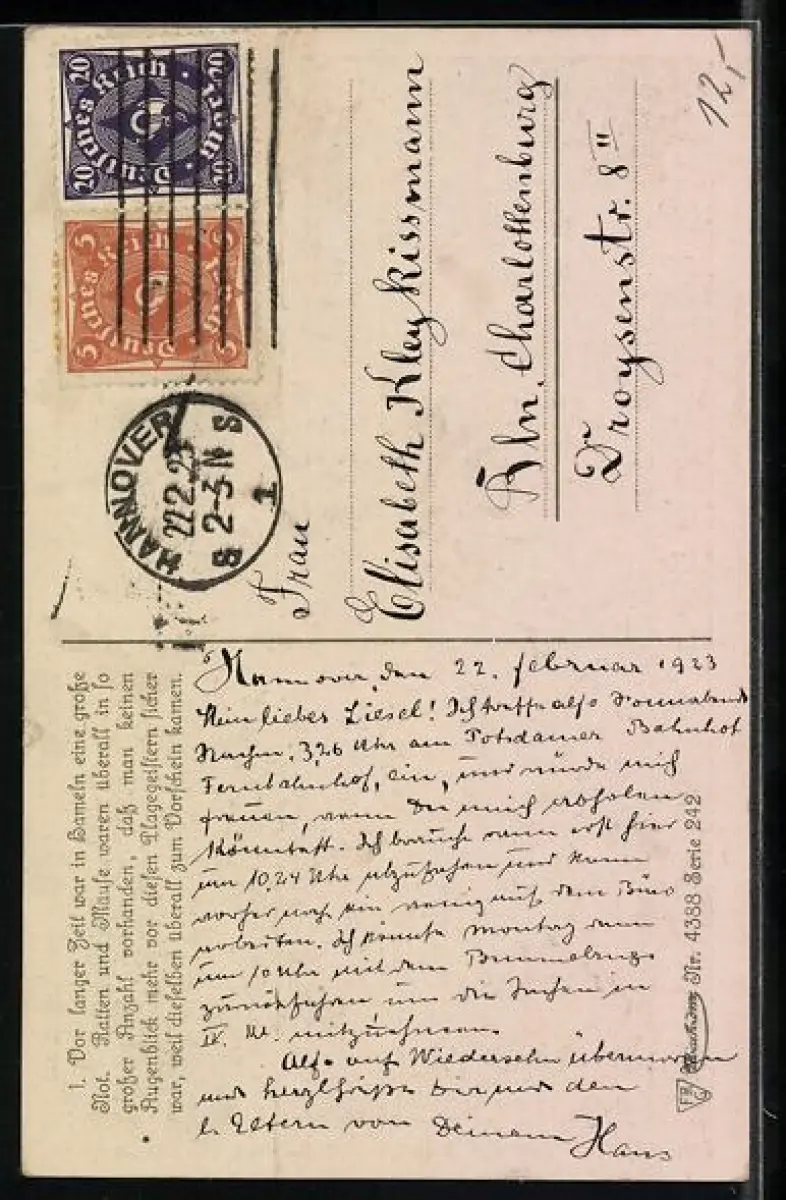 12,-
Deutsches Reich
20 20
20 Mark 20
Deutsches Reich
5 5
5 Mark 5
HANNOVER
22.2.23
2-3 N
S S
1
Frau
Elisabeth Kleykissmann
Bln. Charlottenburg
Droysenstr. 8 II
1. Vor langer Zeit war in Hameln eine große
Not. Ratten und Mäuse waren überall in so
großer Anzahl vorhanden, daß man keinen
Augenblick mehr vor diesen Plagegeistern sicher
war, weil dieselben überall zum Vorschein kamen.
Hannover, den 22. Februar 1923
Mein liebes Liesel! Ich treffe also Sonnabend
Nachm. 3,26 Uhr am Potsdamer Bahnhof
Fernbahnhof, ein, und würde mich
freuen, wenn Du mich abholen
könntest. Ich brauche dann erst hier
um 10,24 Uhr abzufahren und kann
vorher noch ein wenig auf dem Büro
arbeiten. Ich könnte Montag dann
um 10 Uhr mit dem Bummelzuge
zurückfahren um die Sachen in
IV. Kl. mitzunehmen.
Also auf Wiedersehn übermorgen
und herzl. Grüße Dir und den
l. Eltern von Deinem Hans
Nr. 4388 Serie 242